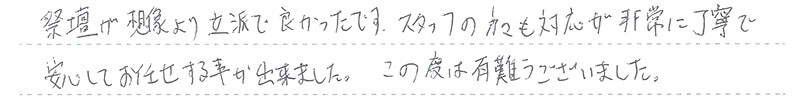 祭壇が想像より立派で良かったです。スタッフの方々も対応が非常に丁寧で
安心してお任せする事が出来ました。 この度は有難うございました。